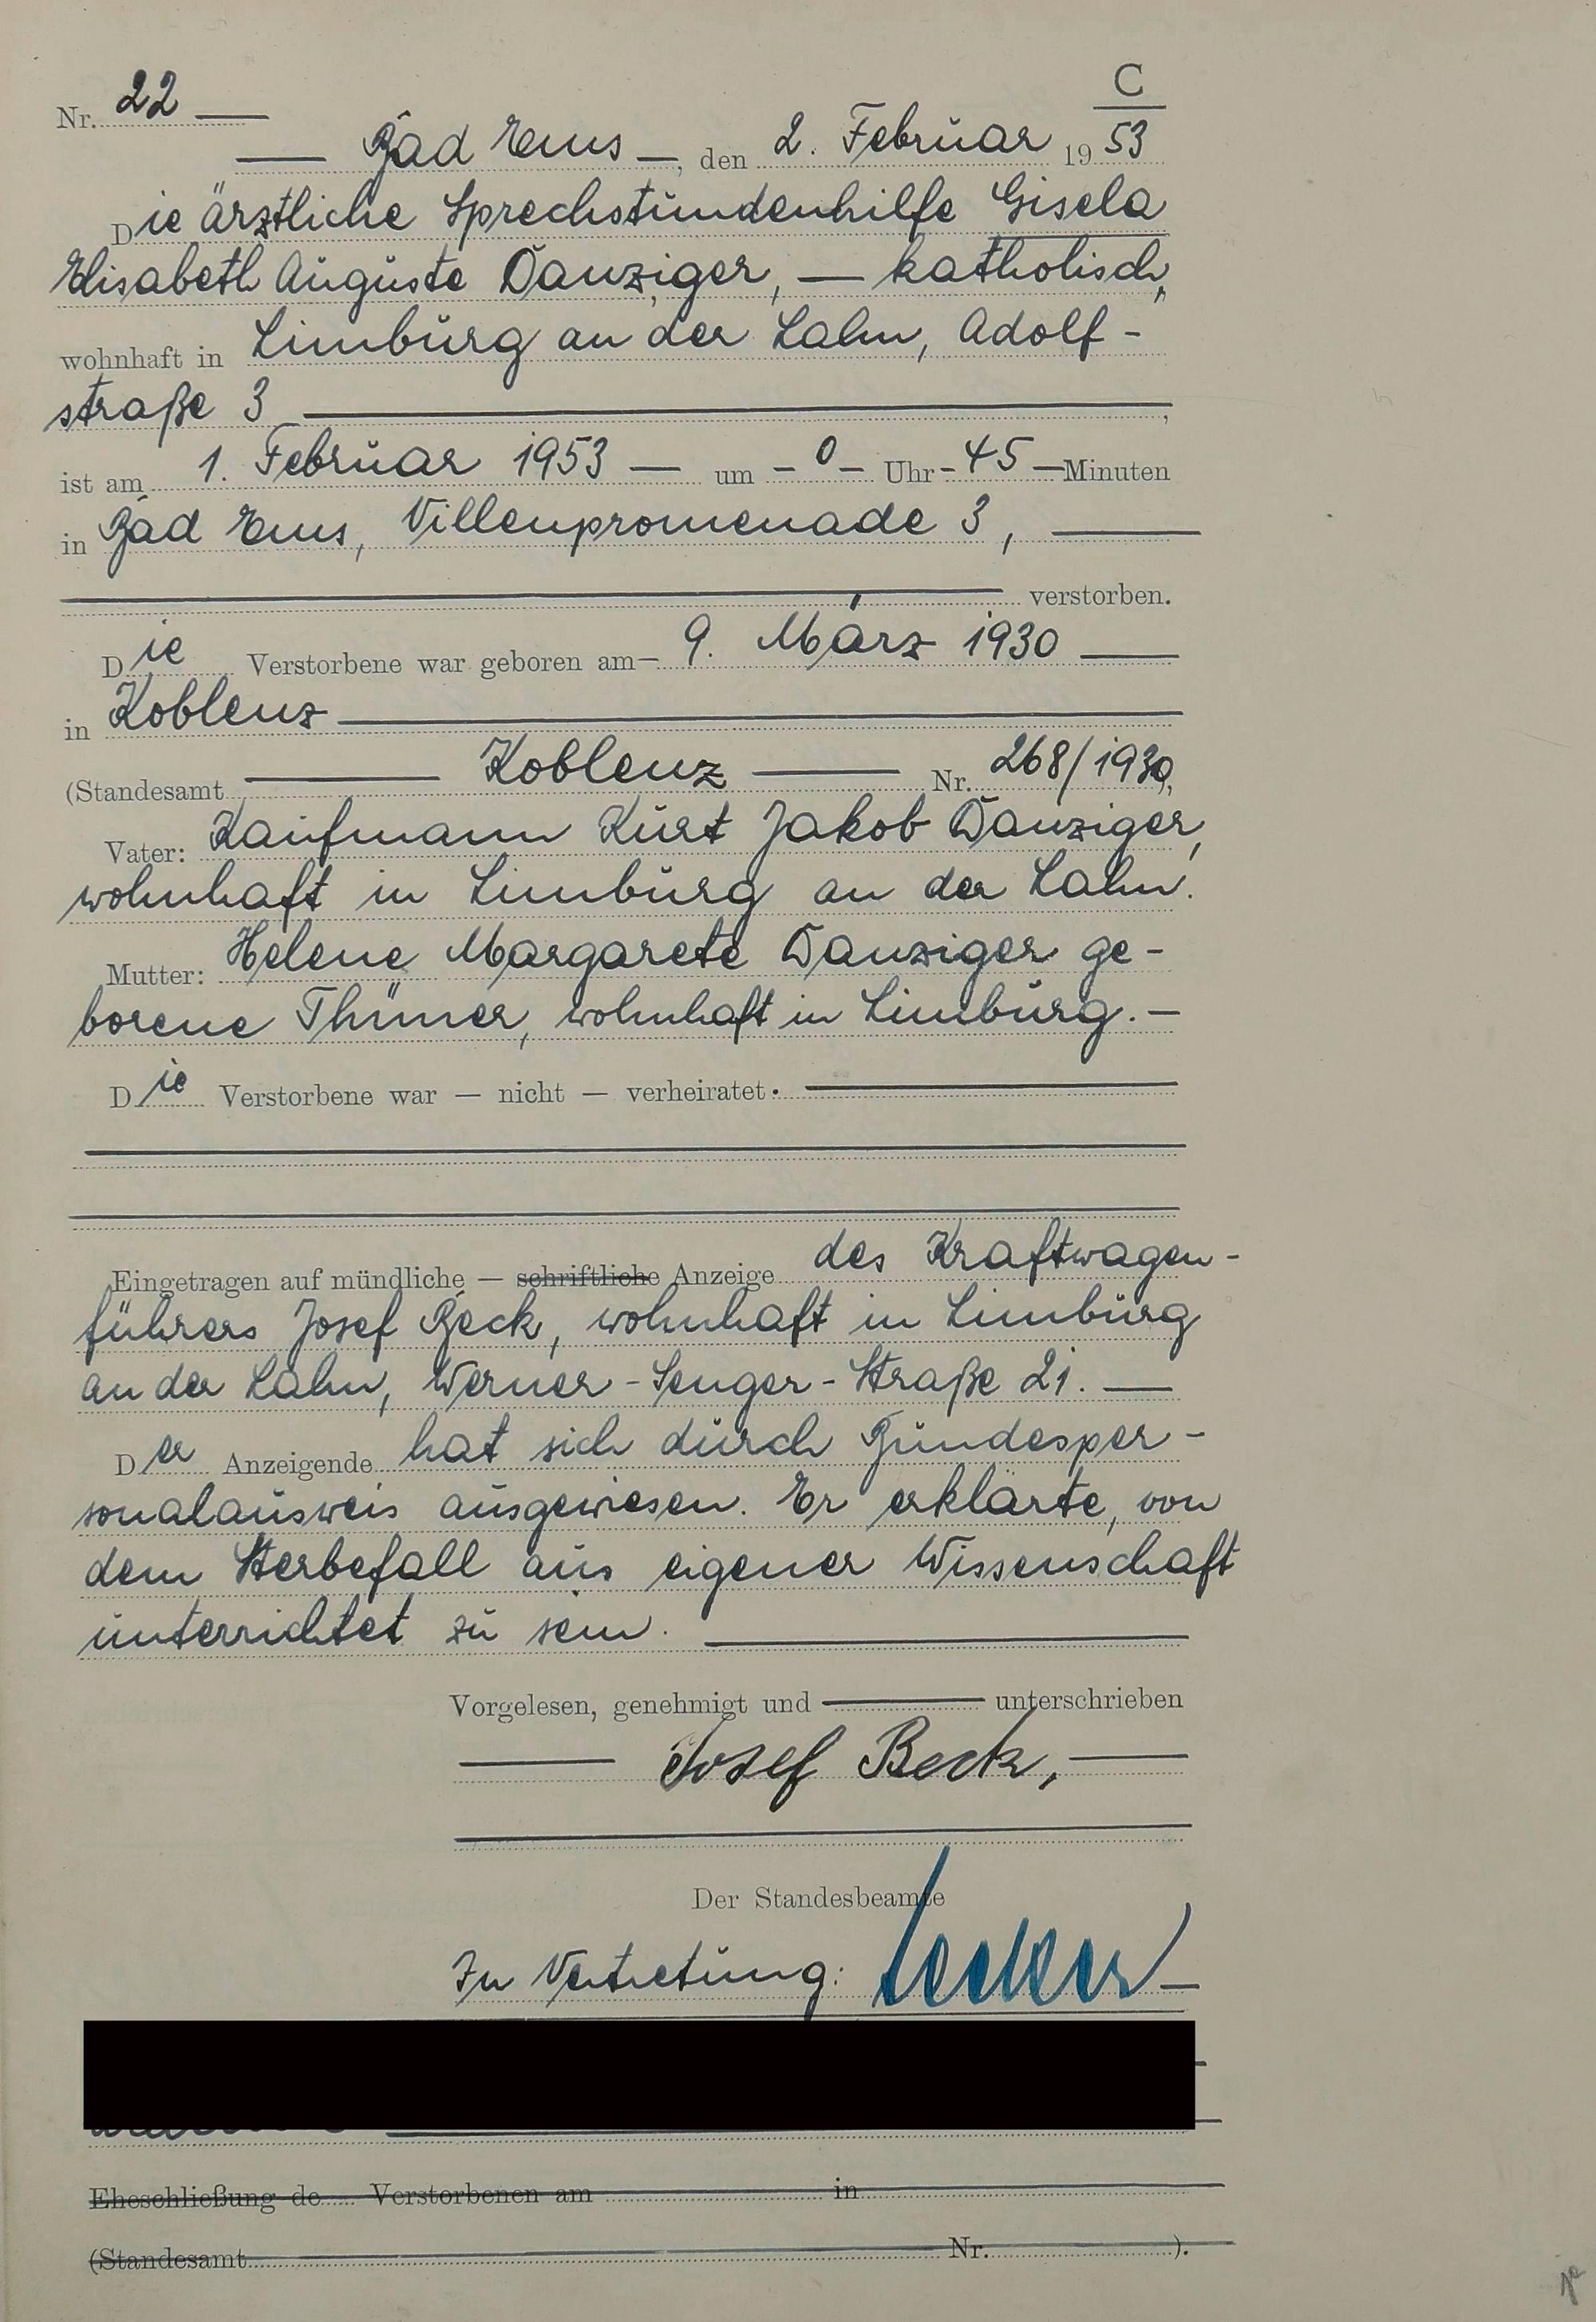 C
Nr. 22 —
— Bad Ems —, den 2. Februar 1953
Die ärztliche Sprechstundenhilfe Gisela
Elisabeth Auguste Danziger, — katholisch,
wohnhaft in Limburg an der Lahn, Adolf-
straße 3 ,
ist am 1. Februar 1953 — um - 0 - Uhr - 45 — Minuten
in Bad Ems, Villenpromenade 3, —
verstorben.
Die Verstorbene war geboren am - 9. März 1930 —
in Koblenz
(Standesamt — Koblenz — Nr. 268/1930,
Vater: Kaufmann Kurt Jakob Danziger,
wohnhaft in Limburg an der Lahn.
Mutter: Helene Margarete Danziger ge-
borene Thümer, wohnhaft in Limburg. —
Die Verstorbene war — nicht — verheiratet.
Eingetragen auf mündliche — schriftliche Anzeige des Kraftwagen-
führers Josef Beck, wohnhaft in Limburg
an der Lahn, Werner-Senger-Straße 21. —
Der Anzeigende hat sich durch Bundesper-
sonalausweis ausgewiesen. Er erklärte, von
dem Sterbefall aus eigener Wissenschaft
unterrichtet zu sein. —
Vorgelesen, genehmigt und — unterschrieben
— Josef Beck, —
Der Standesbeamte
In Vertretung:
Eheschließung de Verstorbenen am in
(Standesamt Nr. ).